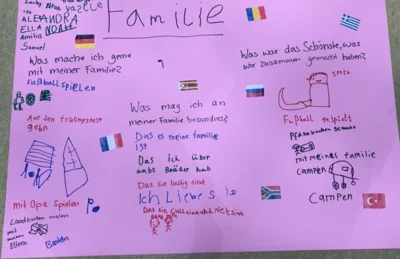 Familie
ALEJANDRA
ELLA NOAH
Amilia
Samuel
Was mache ich gerne
mit meiner Familie?
Fußball spielen
Auf den
gehn
mit Opa spielen
Landkarten malen
mit
meinen
Eltern
Basteln
Was mag ich an
meiner Familie besonders?
Das es meine familie
ist
Das ich über
Brüder hab
Das sie lustig sind
Ich Liebe sie
Das sie
Was war das Schönste, was
wir zusammen gemacht haben?
Fußball gespielt
mit meines familie
campen
Campen